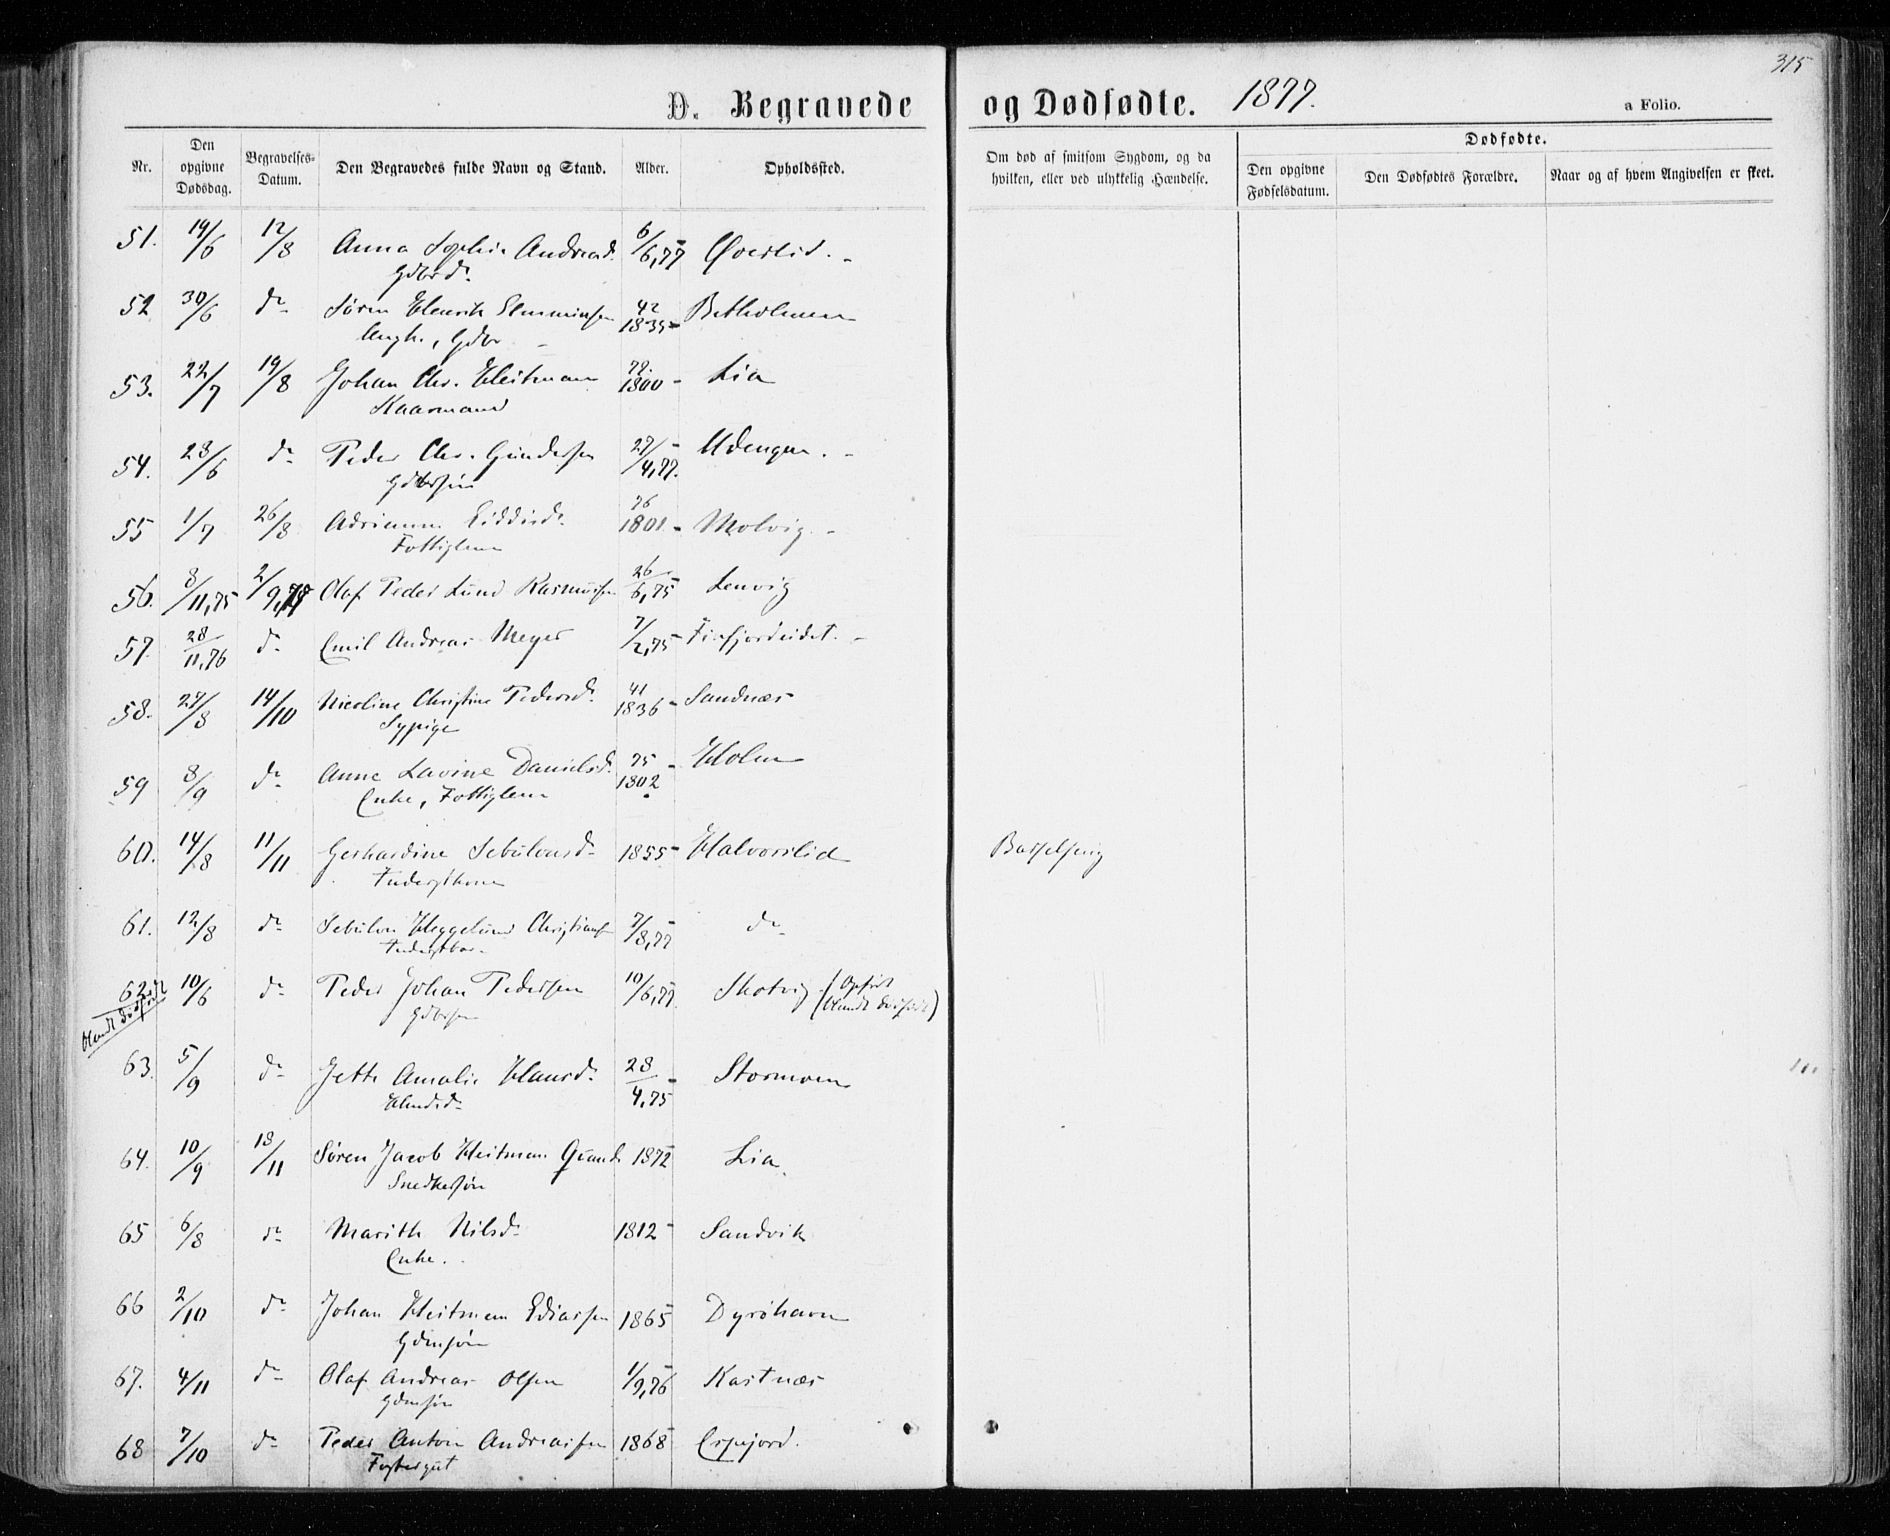 315
D. Begravede og Dødfødte. 1877. a Folio.
Nr. Den opgivne Dødsdag. Begravelses-Datum. Den Begravedes fulde Navn og Stand. Alder. Opholdssted. Om død af smitsom Sygdom, og da hvilken, eller ved ulykkelig Hændelse. Dødfødte. Den opgivne Fødselsdatum. Den Dødfødtes Forældre. Naar og af hvem Angivelsen er skeet.
51. 19/6 12/8 Anna Sophie Andreasd. 6/6,77 Øverlid.
Gdbrdr
52 30/6 dº Søren Henrik Elmminsen 42 1835 Betholmen
Ungk., Gdbr
53. 22/7 19/8 Johan Chr. Heitmann 77. 1800 Lia
Kaarmand
54. 28/6 dº Peder Chr. Gundersen 27/4,77. Udengen.
Gdbrsøn
55 1/7 26/8 Adrianna Eiddisdr 76 1801 Molvig.
Fattiglem
56. 8/11,75 2/9,77 Olaf Peder Lund Rasmussen 26/6,75 Lenvig
57. 28/11,76 dº Emil Andreas Meyer 7/2,75 Finfjordeidet.
58. 27/8 14/10 Nicoline Christine Pedersdr 41 1836 Sandnæs
Sypige
59 8/9 dº Anne Lavine Danielsdr 75 1802 Holm
Enke, Fattiglem
60. 14/8 11/11 Gerhardine Sebulonsdr 1855 Halvorslid Barselseng
Inderstkone
61. 12/8 dº Sebulon Heggelund Christiansen 7/8,77 dº
Inderstbar
62. 10/6 dº Peder Johan Pedersen 10/6,77. Skotvig (Opført blandt dødfødte)
blandt dødfødte Gdbrsøn
63. 5/9 dº Jette Amalie Hansdr 28/4,75 Stormoen
Husmdr
64. 10/9 18/11 Søren Jacob Heitman Qvande 1872 Lia
Snedkersøn
65 6/8 dº Marith Nilsdr 1812 Sandvik
Enke.
66 2/10 dº Johan Heitmann Ediassen 1865 Dyrøhavn
Gdmsøn
67. 4/11 dº Olaf Andreas Olsen 1/9,76 Kastnæs
Gdmsøn
68 7/10 dº Peder Anton Andreassen 1868 Espejord.
Fostergut